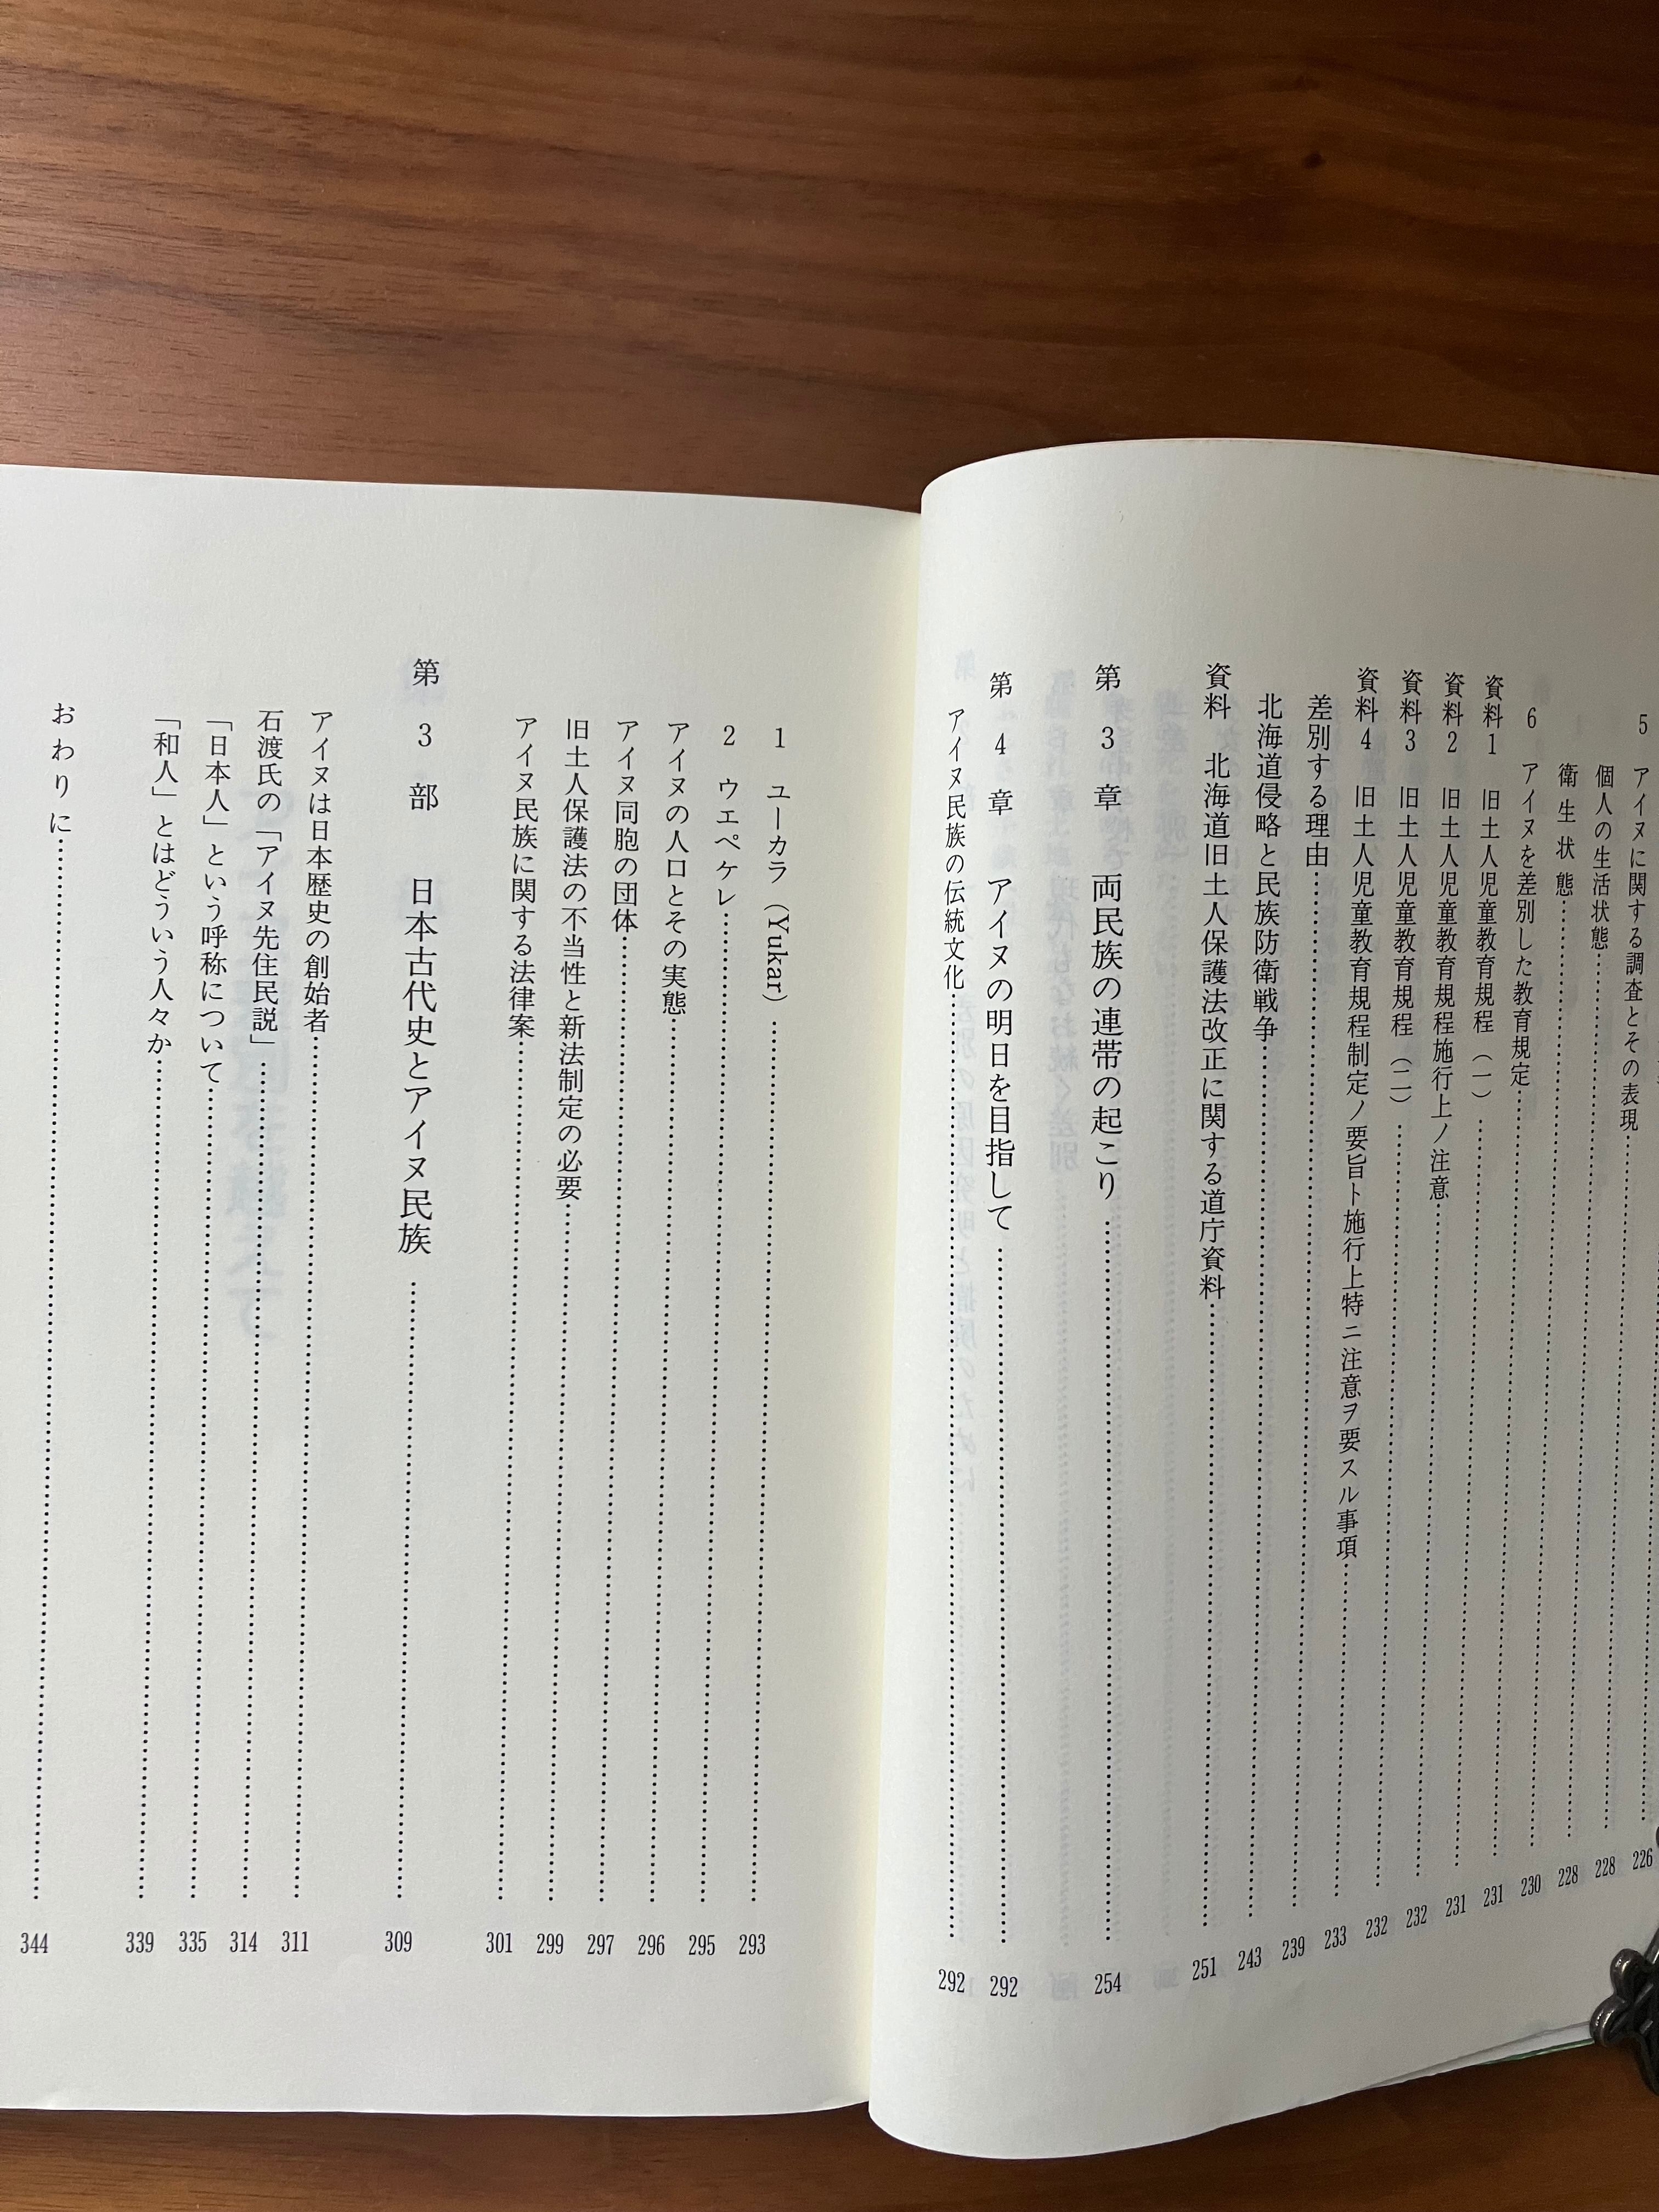 5 アイヌに関する調査とその表現……226
個人の生活状態……228
衛生状態……228
6 アイヌを差別した教育規定……230
資料1 旧土人児童教育規程（一）……231
資料2 旧土人児童教育規程施行上ノ注意……231
資料3 旧土人児童教育規程（二）……232
資料4 旧土人児童教育規程制定ノ要旨ト施行上特ニ注意ヲ要スル事項……232
差別する理由……233
北海道侵略と民族防衛戦争……239
資料 北海道旧土人保護法改正に関する道庁資料……251
第3章 両民族の連帯の起こり……254
第4章 アイヌの明日を目指して……292
アイヌ民族の伝統文化……292
1 ユーカラ（Yukar）……293
2 ウエペケレ……295
アイヌの人口とその実態……296
アイヌ同胞の団体……297
旧土人保護法の不当性と新法制定の必要……299
アイヌ民族に関する法律案……301
第3部 日本古代史とアイヌ民族……309
アイヌは日本歴史の創始者……311
石渡氏の「アイヌ先住民説」……314
「日本人」という呼称について……335
「和人」とはどういう人々か……339
おわりに……344